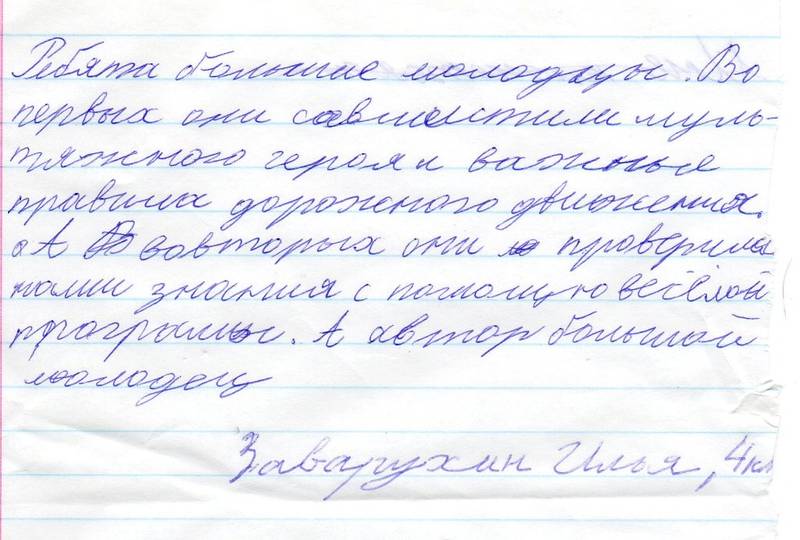 Ребята большие молодцы. Во
первых они совместили муль-
тяжного героя и важные
правила дорожного движения.
А вовторых они проверили
нами знания с помощью весёлой
програмы. А автор большой
молодец
Заварухин Илья, 4 кл